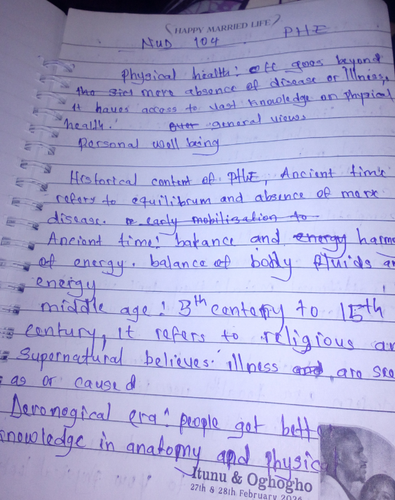 HAPPY MARRIED LIFE
NUD 104 PHE
physical health: goes beyond
the mere absence of disease or Illness,
It haves access to vast knowledge on physical
health. general views
Personal well being
Historical content of PHE, Ancient time
refers to equilibrum and absence of
disease. early mobilization to
Ancient time: balance and energy harm
of energy. balance of body fluids an
energy
middle age: 5th century to 15th
century, It refers to religious an
Supernatural believes. illness and are see
as or caused
era: people get bett
knowledge in anatomy and physica
Itunu & Oghogho
27th & 28th February 2026